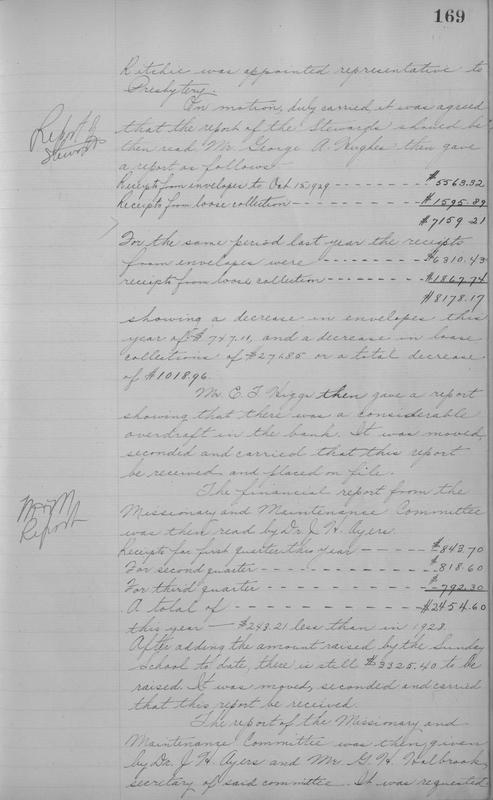 169
Ritchie was appointed representative to
Presbytery.
On motion, duly carried, it was agreed
that the report of the Stewards should be
Report of
Stewards
then read Mr. George A. Hughes then gave
a report as follows—
Receipts from envelopes to Oct 15 1929 - - - - - - - - $5563.32
Receipts from loose collection - - - - - - - - $1595.89
$7159.21
For the same period last year the receipts
from envelopes were - - - - - - - - $6310.43
receipts from loose collection - - - - - - - - $1867.74
$8178.17
showing a decrease in envelopes this
year of $747.11, and a decrease in loose
collections of $271.85 or a total decrease
of $1018.96
Mr. E. F. Higgs then gave a report
showing that there was a considerable
overdraft in the bank. It was moved,
seconded and carried that this report
be received and placed on file.
M & M
Report
The financial report from the
Missionary and Maintenance Committee
was then read by Dr. J. H. Ayers.
Receipts for first quarter this year - - - - - $843.70
For second quarter - - - - - - - - $818.60
For third quarter - - - - - - - - $792.30
A total of - - - - - - - - $2454.60
this year — $243.21 less than in 1928.
After adding the amount raised by the Sunday
School to date, there is still $3325.40 to be
raised. It was moved, seconded and carried
that this report be received.
The report of the Missionary and
Maintenance Committee was then given
by Dr. J. H. Ayers and Mr. G. H. Holbrook,
secretary of said committee. It was requested